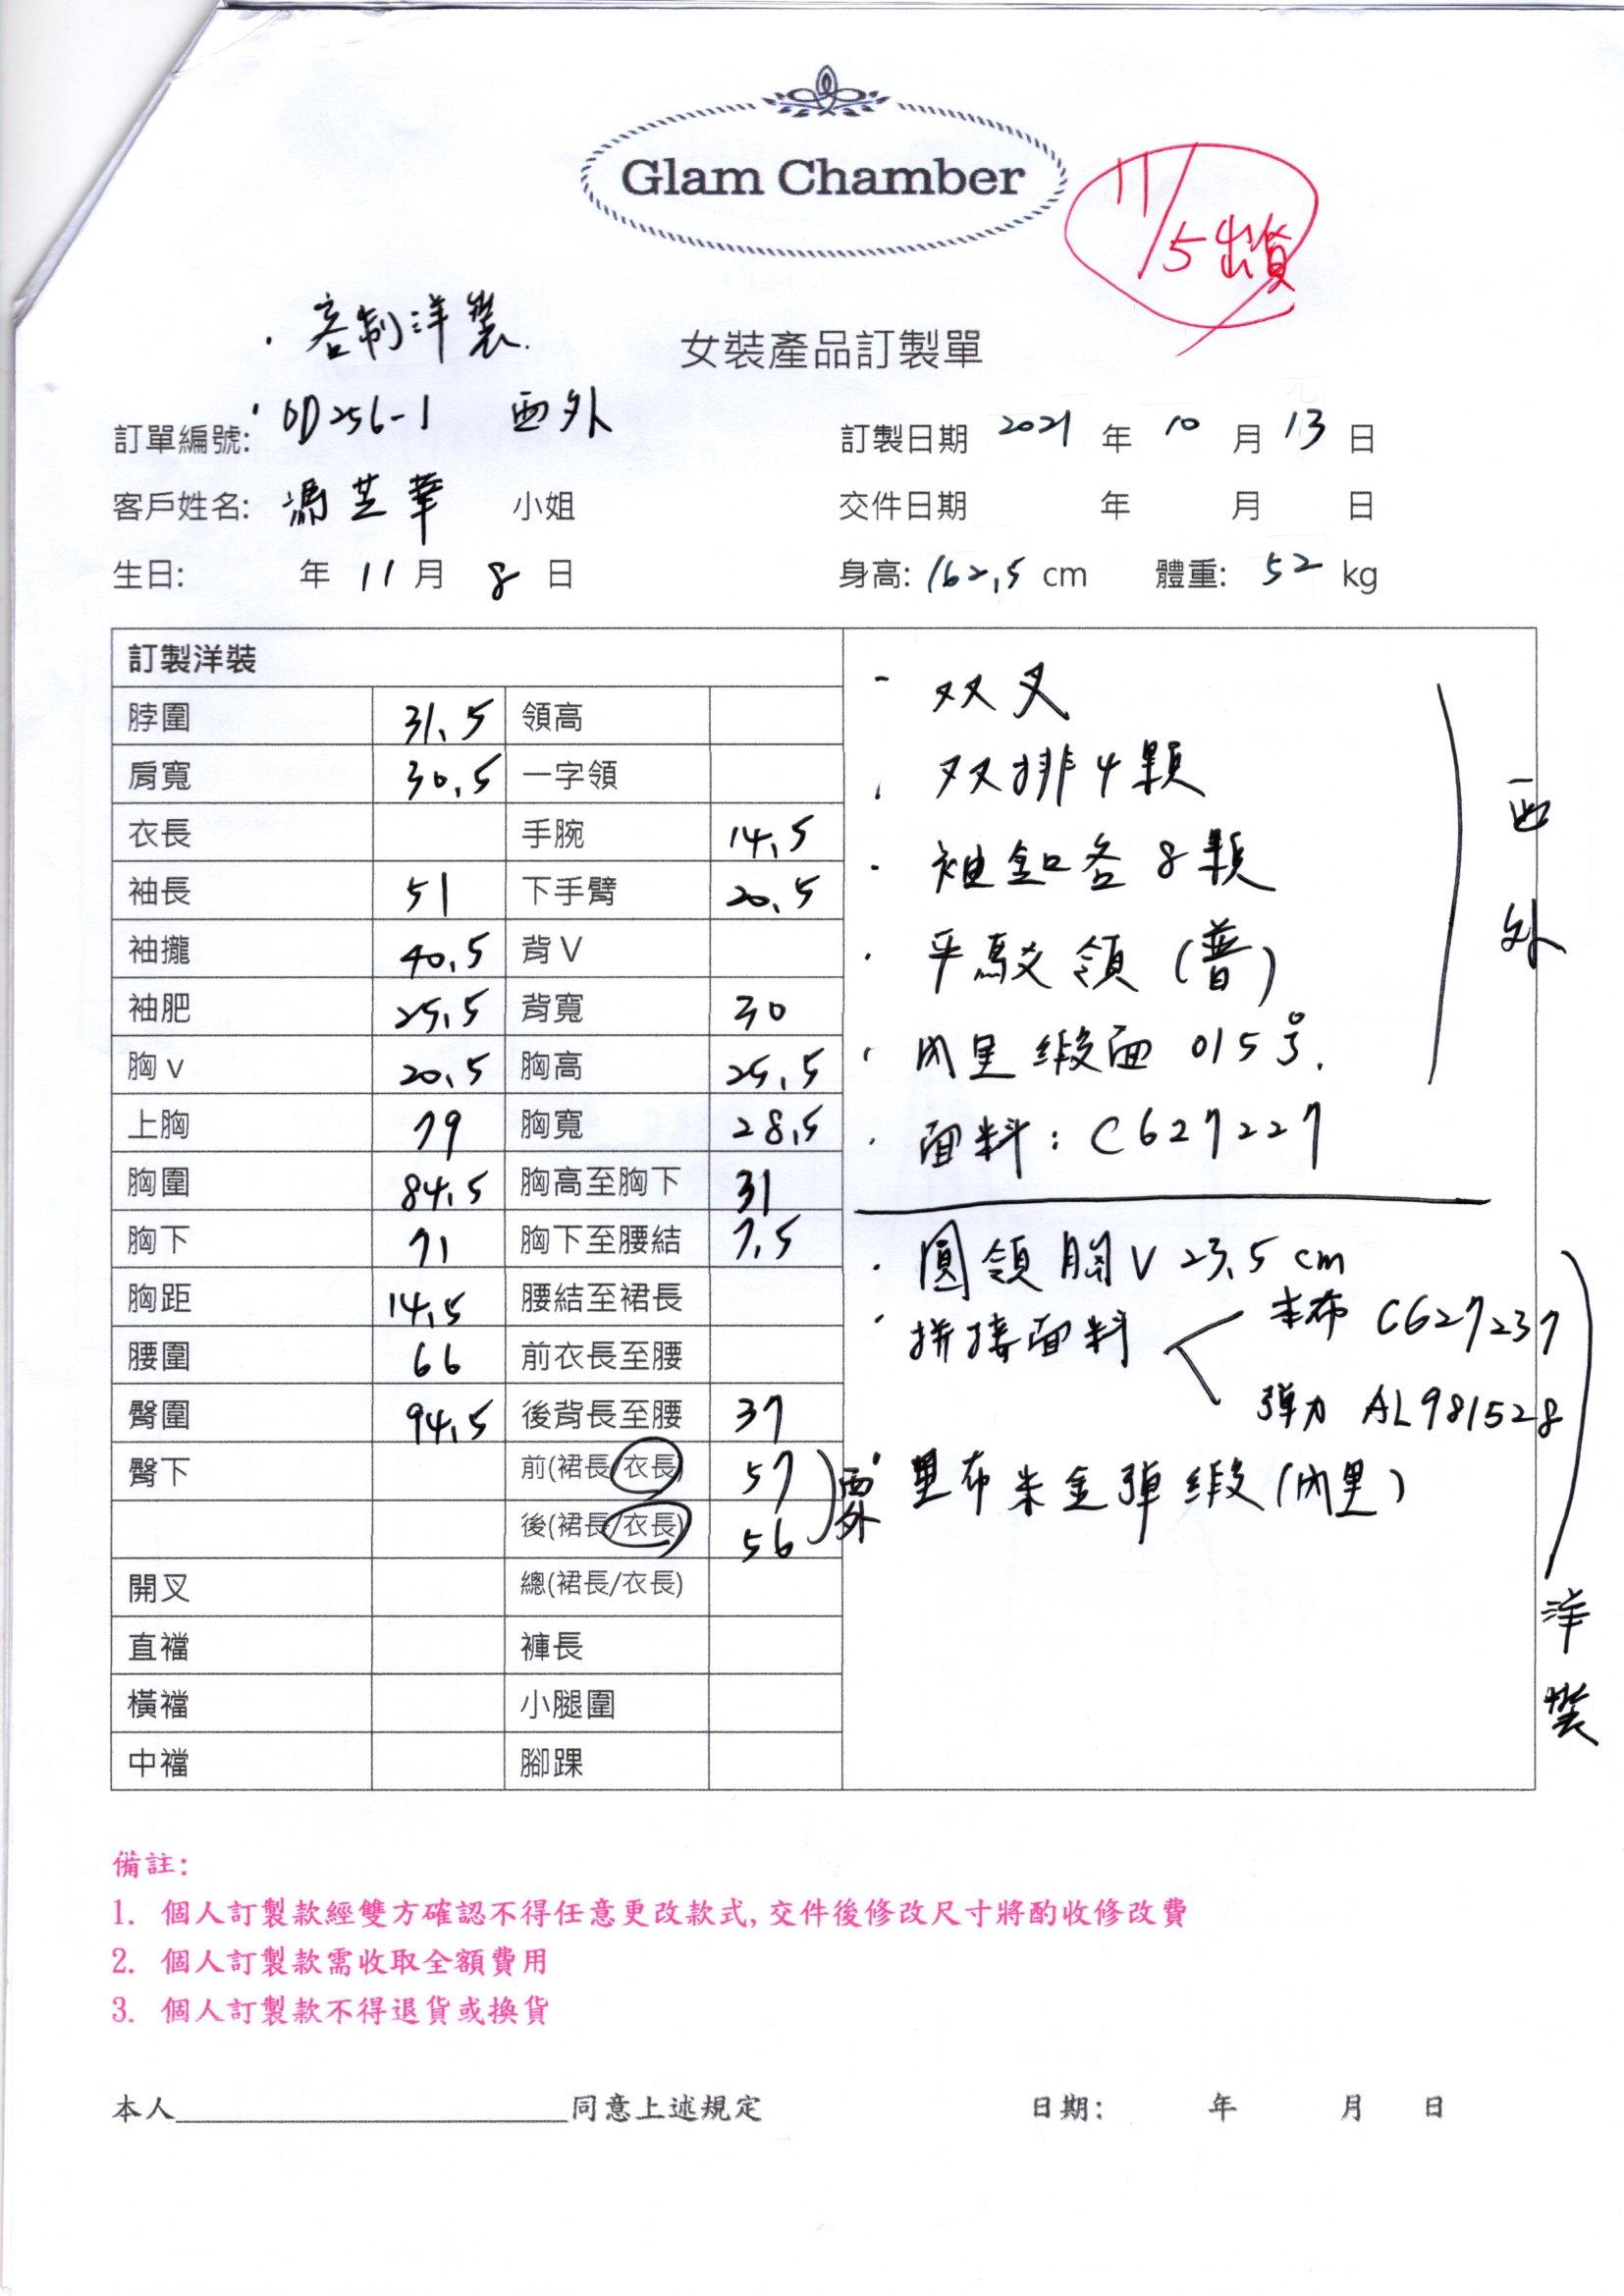 Glam Chamber
11/5出貨
· 客制洋裝.
女裝產品訂製單
訂單編號: · OD256-1 西外 訂製日期 2021 年 10 月 13 日
客戶姓名: 馮芷華 小姐 交件日期 年 月 日
生日: 年 11 月 8 日 身高: 162.5 cm 體重: 52 kg
訂製洋裝
脖圍 31.5 領高
肩寬 30.5 一字領
衣長 手腕 14.5
袖長 51 下手臂 20.5
袖攏 40.5 背V
袖肥 25.5 背寬 30
胸v 20.5 胸高 25.5
上胸 79 胸寬 28.5
胸圍 84.5 胸高至胸下 31
胸下 71 胸下至腰結 7.5
胸距 14.5 腰結至裙長
腰圍 66 前衣長至腰
臀圍 94.5 後背長至腰 37
臀下 前(裙長/衣長) 57
後(裙長/衣長) 56
西外
開叉 總(裙長/衣長)
直襠 褲長
橫襠 小腿圍
中襠 腳踝
- 双叉
· 双排4顆
· 袖釦各8顆
· 平駁領(普)
· 內里緞面 015号.
· 面料: C627227
西外
· 圓領胸V 23.5 cm
· 拼接面料 本布 C627237
彈力 AL981528
· 里布朱金彈緞(內里)
洋裝
備註:
1. 個人訂製款經雙方確認不得任意更改款式,交件後修改尺寸將酌收修改費
2. 個人訂製款需收取全額費用
3. 個人訂製款不得退貨或換貨
本人________________同意上述規定 日期: 年 月 日